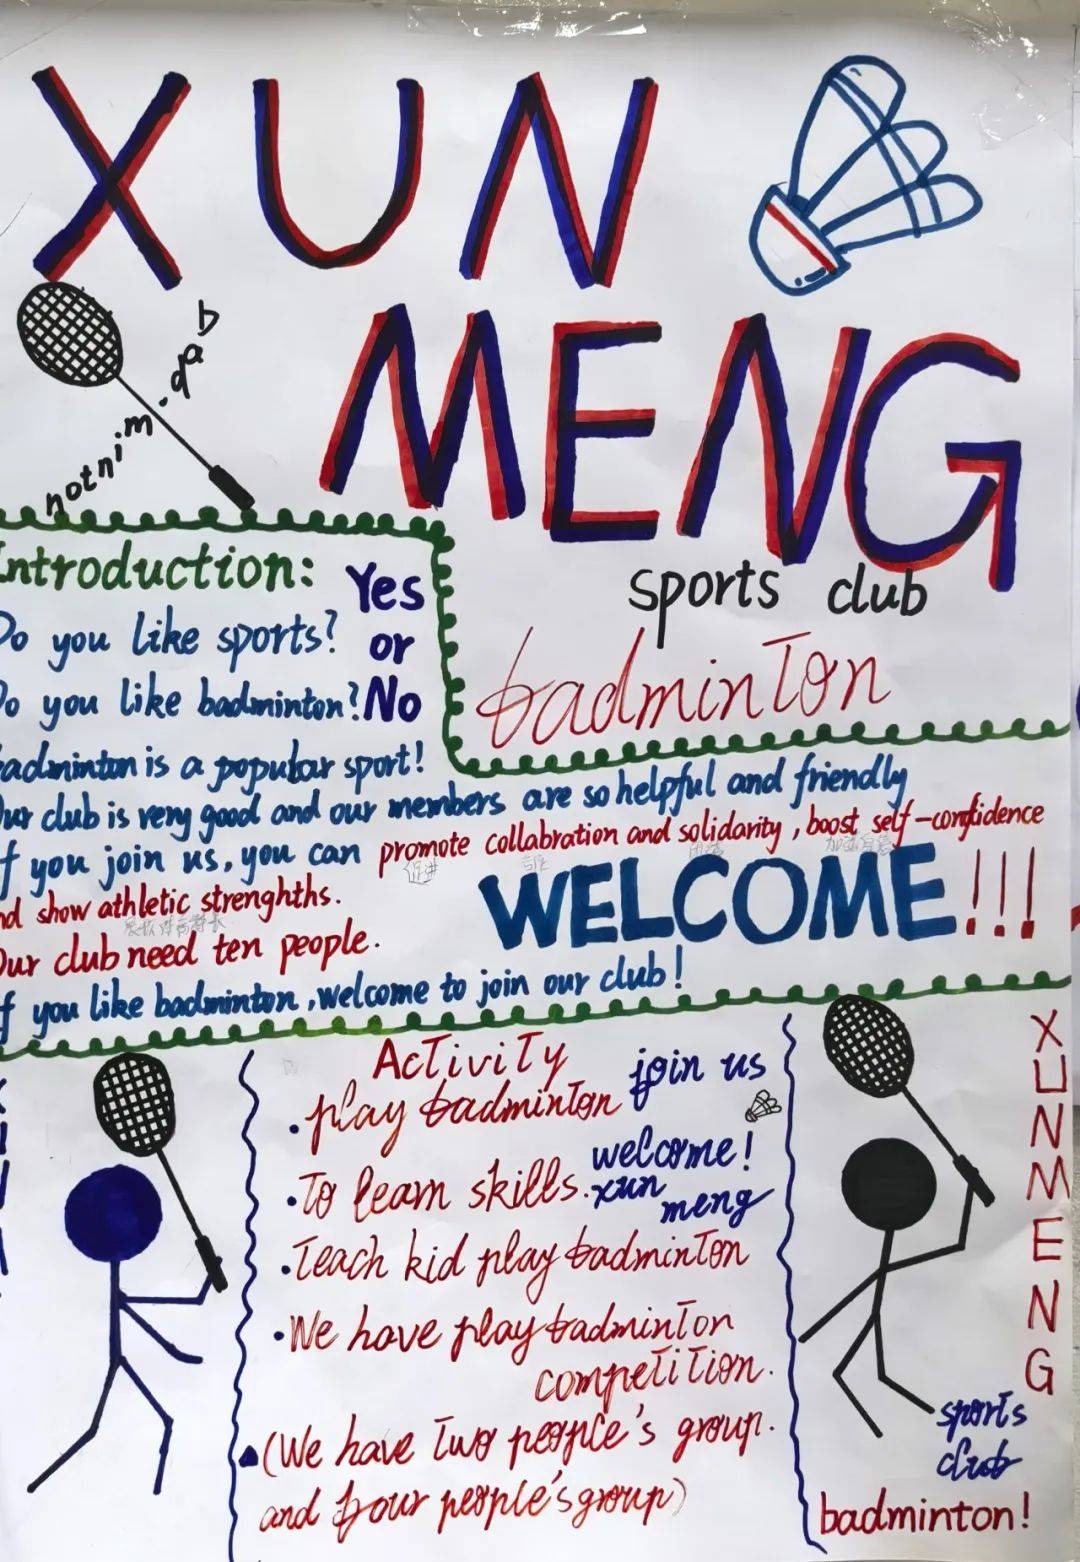 XUN
MENG
notnim.dab
sports club
badminton
Introduction:
Do you like sports?
Do you like badminton?
Yes
or
No
badminton is a popular sport!
Our club is very good and our members are so helpful and friendly
If you join us, you can promote collabration and solidarity, boost self-confidence
促进
and show athletic strenghths.
WELCOME!!!
Our club need ten people.
If you like badminton, welcome to join our club!
Activity
join us
• play badminton
welcome!
• To learn skills.
xun
meng
• Teach kid play badminton
• We have play badminton
competition.
(We have two people's group.
and four people's group)
XUNMENG
sports
club
badminton!